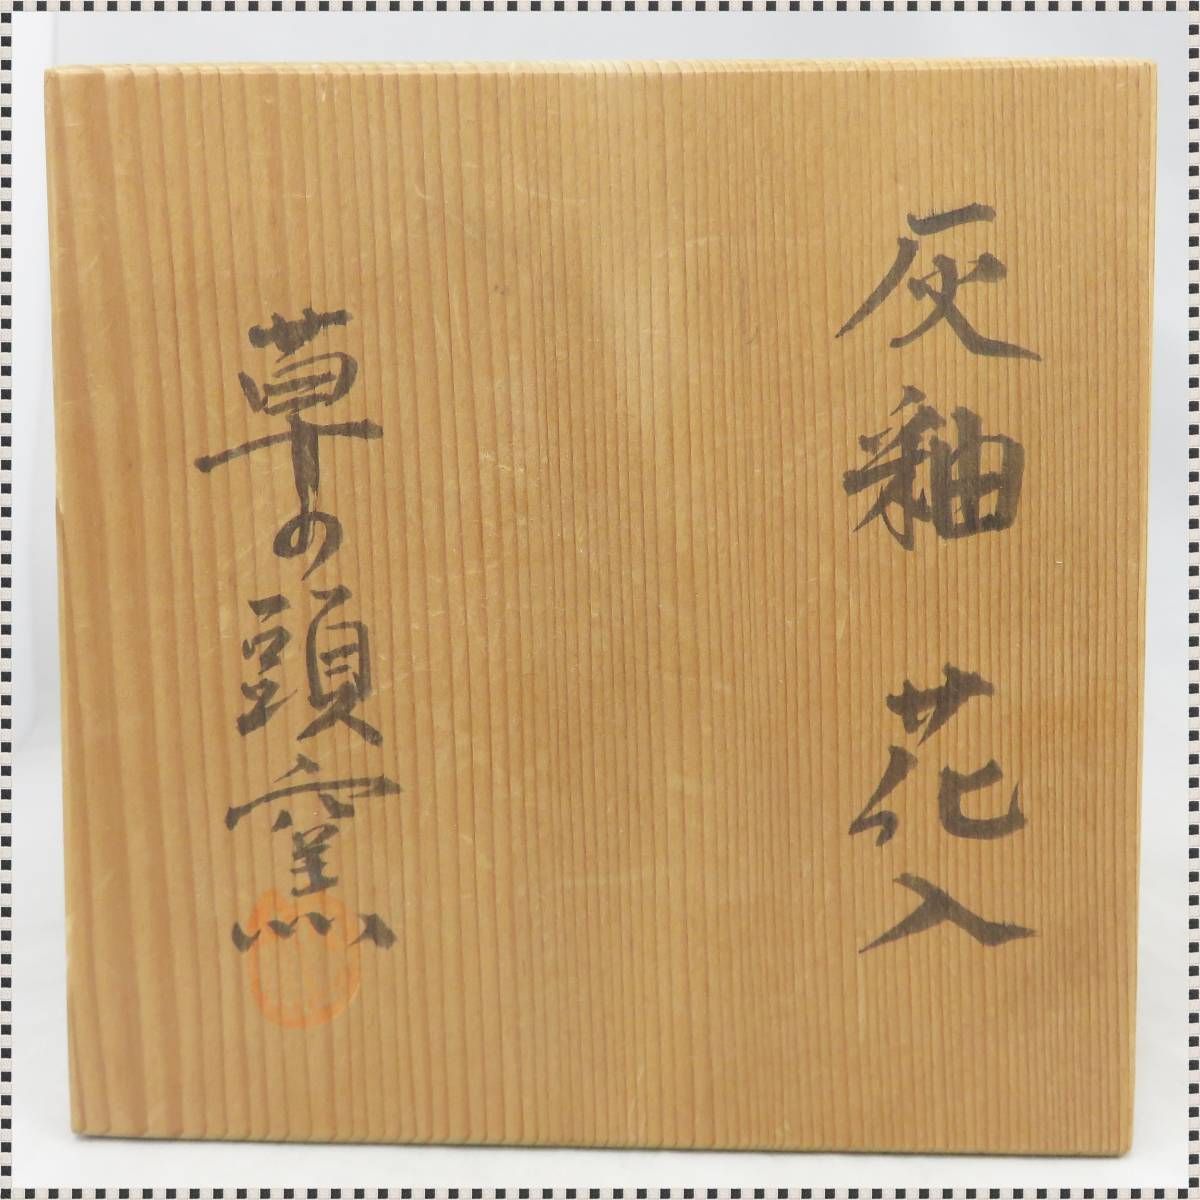 灰釉 花入
草の頭窯